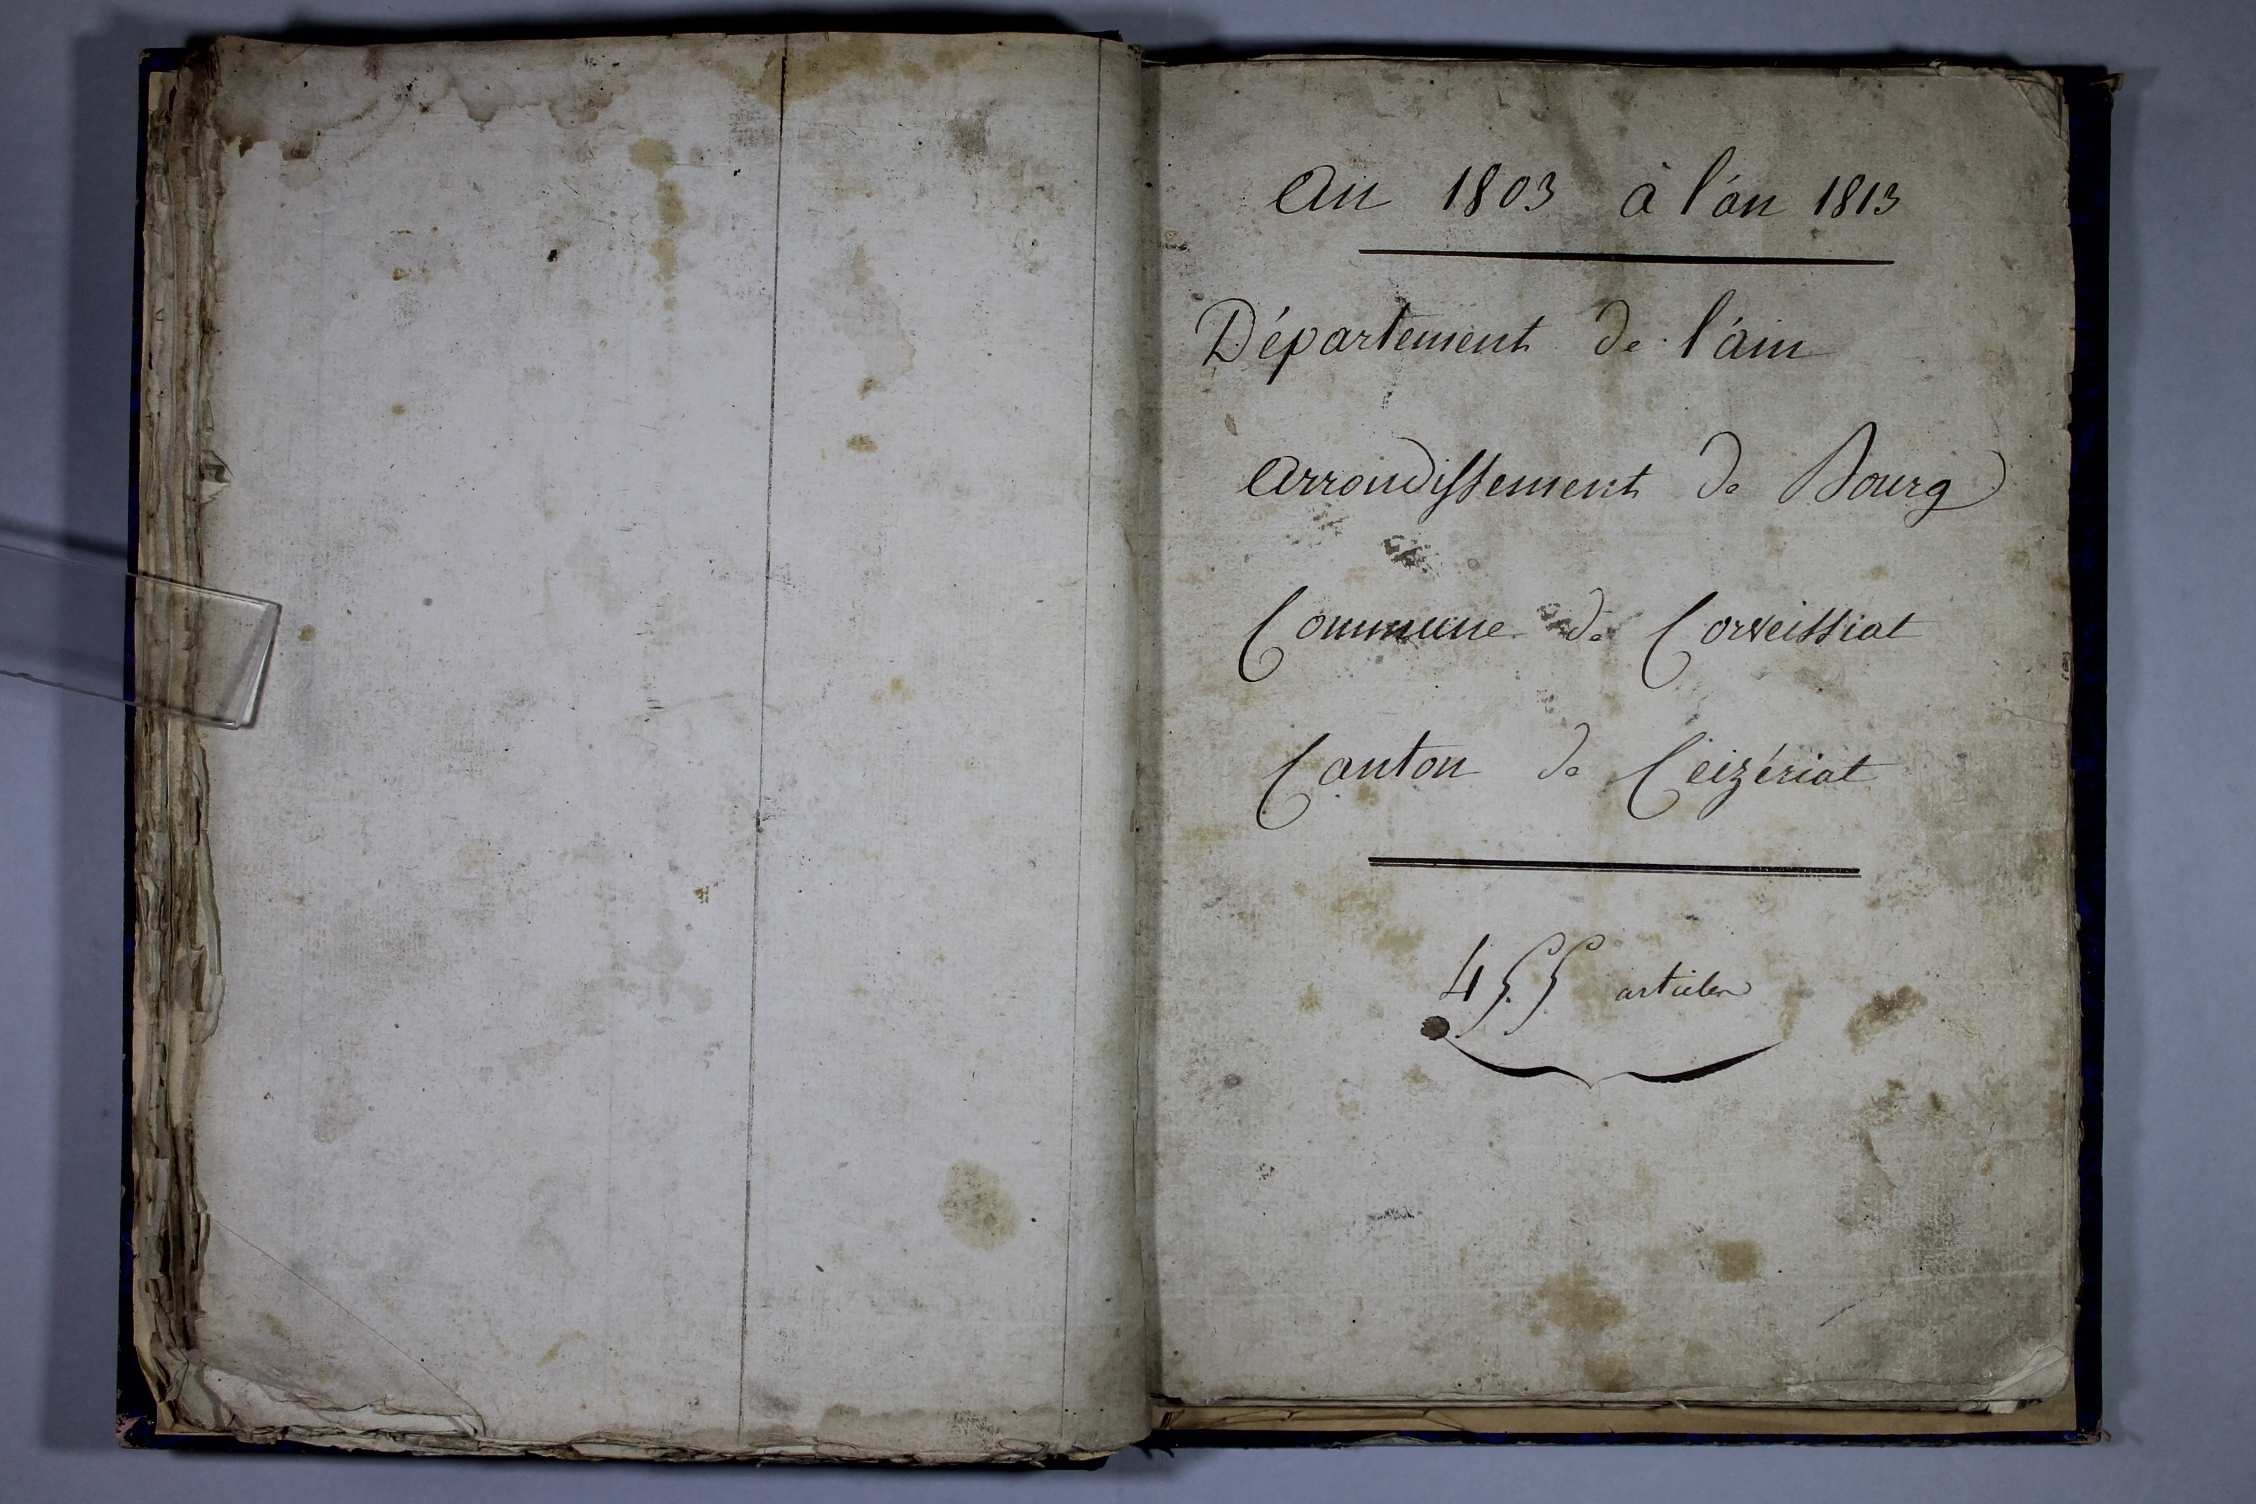 An 1803 à l'an 1813
Département de l'ain
Arrondissement de Bourg
Commune de Corveissiat
Canton de Ceizériat
455 articles